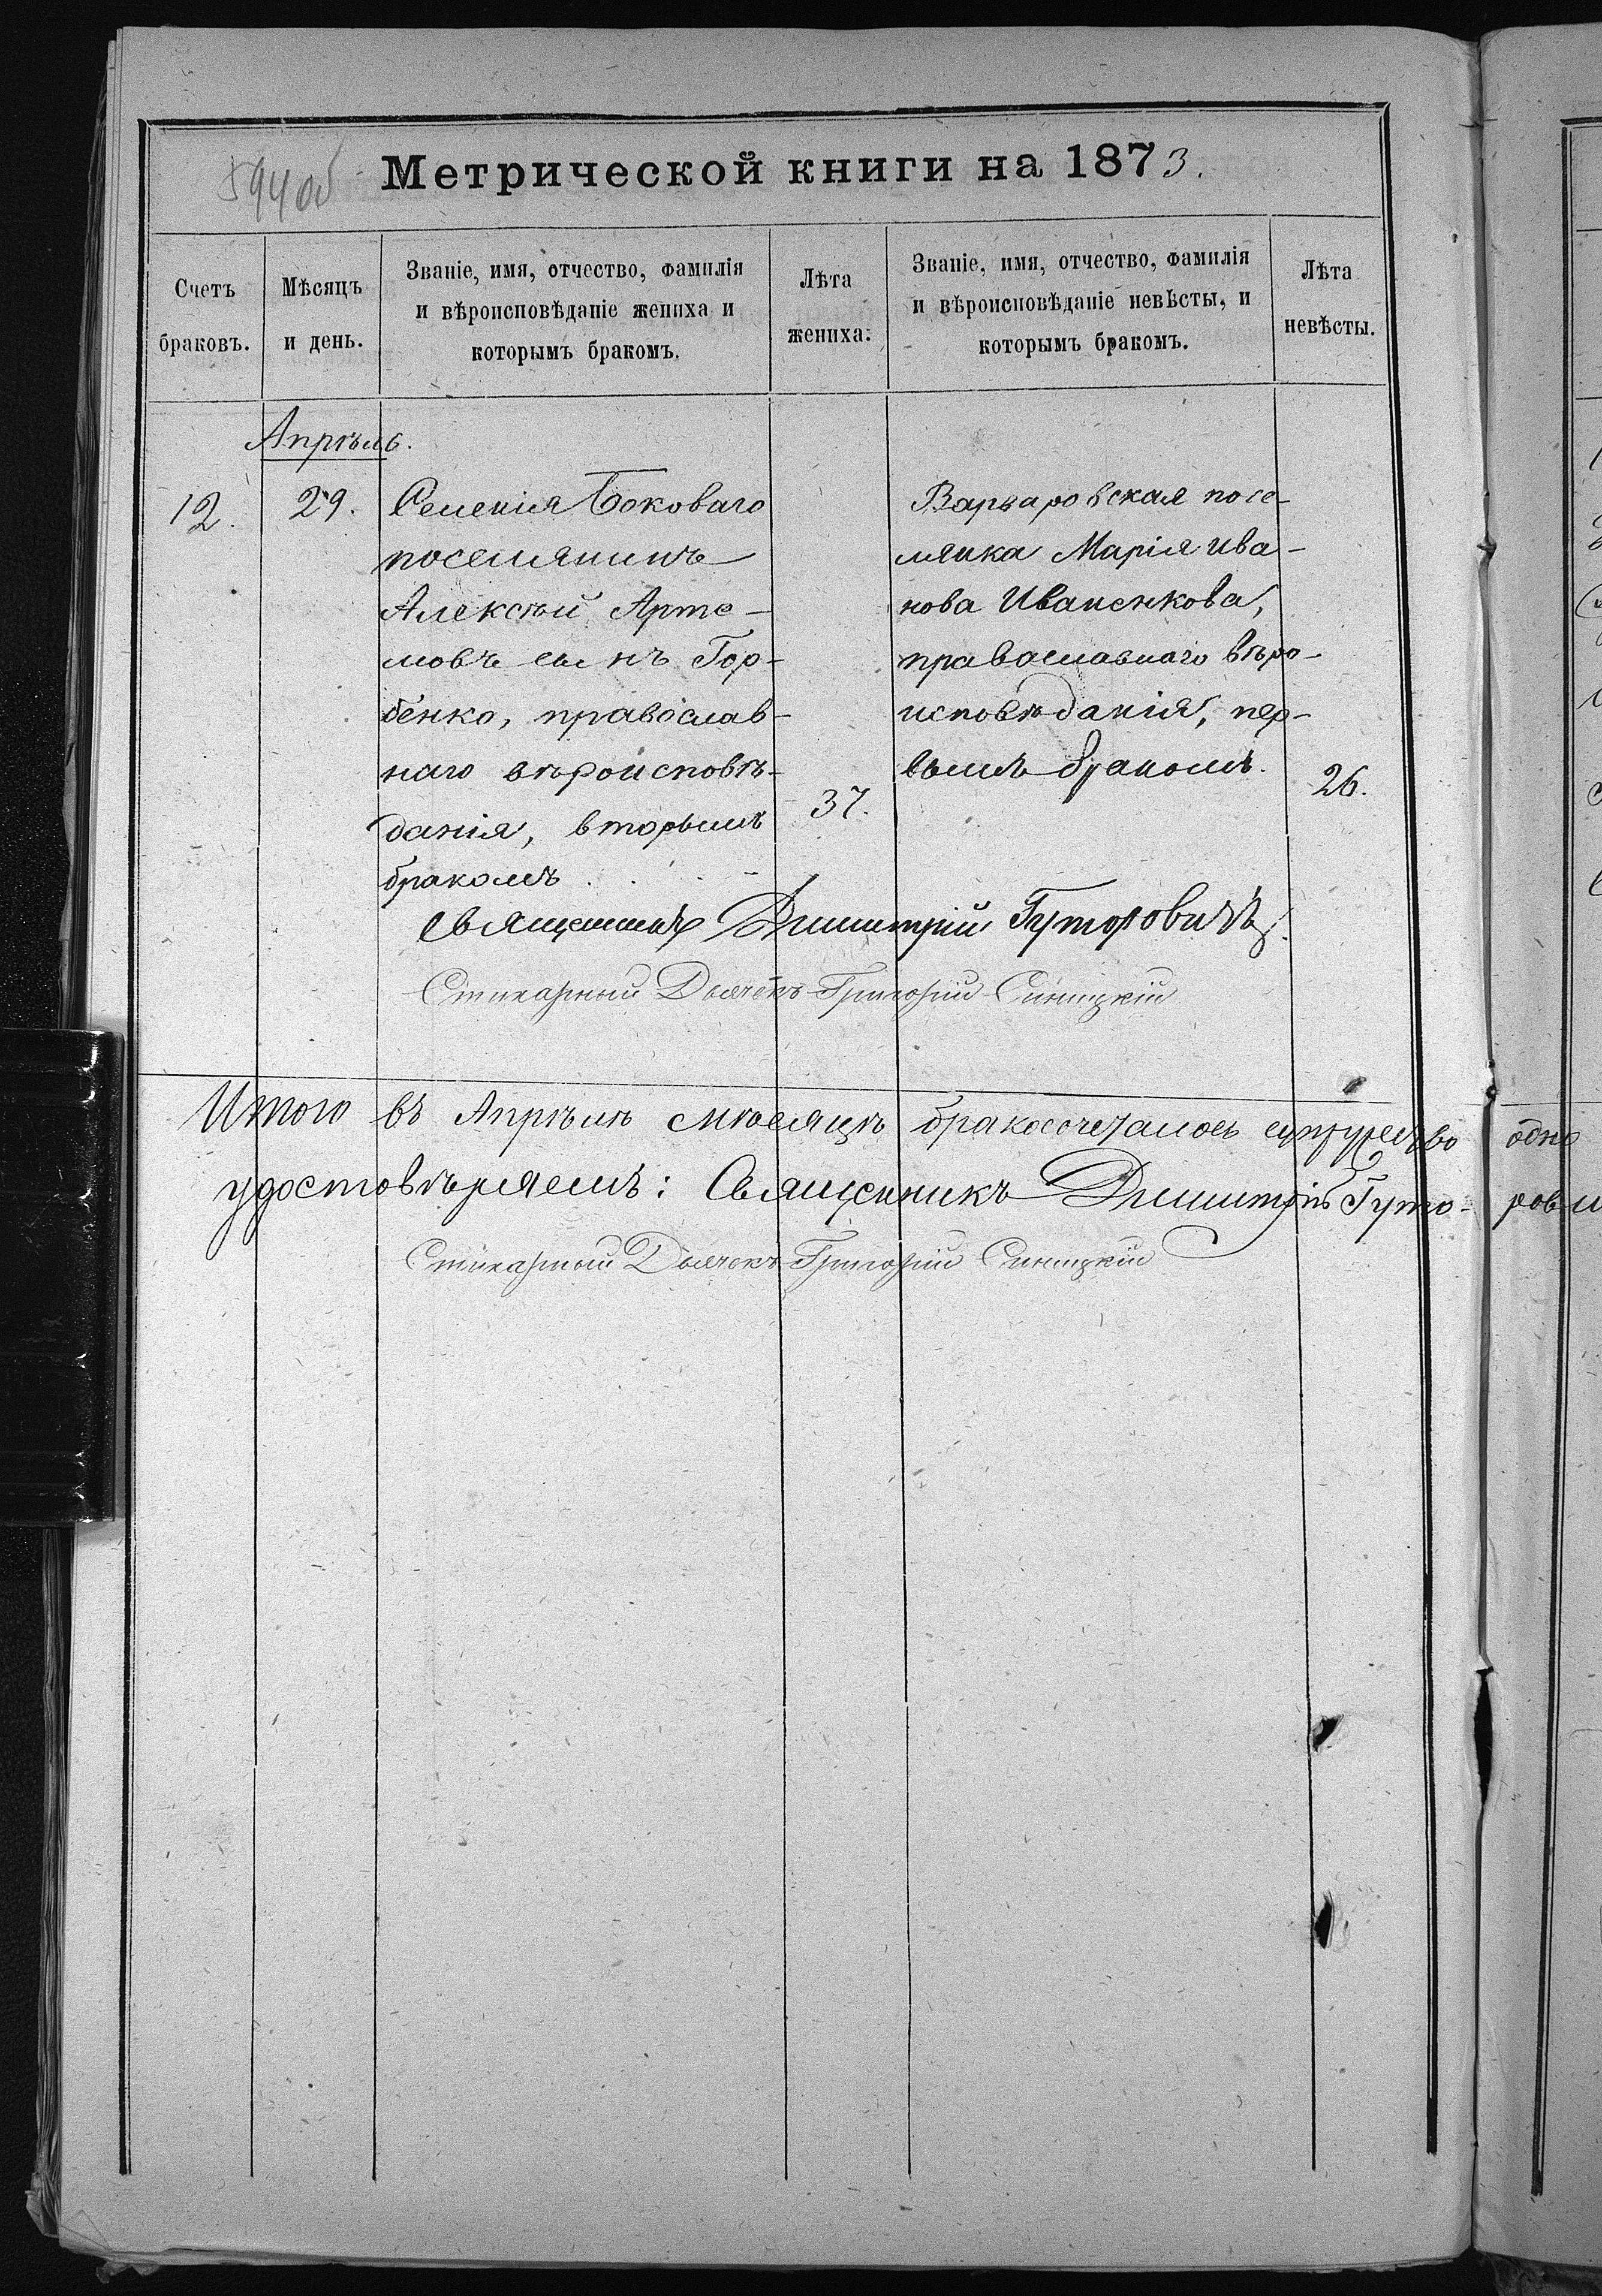 594 об
Метрической книги на 1873.
Счетъ браковъ.
Мѣсяцъ и день.
Званіе, имя, отчество, фамилія и вѣроисповѣданіе жениха и которымъ бракомъ.
Лѣта жениха.
Званіе, имя, отчество, фамилія и вѣроисповѣданіе невѣсты, и которымъ бракомъ.
Лѣта невѣсты.
Апрѣль.
12.
29.
Селенія Боковаго
поселянинъ
Алексѣй Арте-
мовъ сынъ Гор-
бенко, православ-
наго вѣроисповѣ-
данія, вторымъ
бракомъ . . . -
37.
Варваровская посе-
лянка Марія Ива-
нова Иваненкова,
православнаго вѣро-
исповѣданія, пер-
вымъ бракомъ.
26.
Священникъ Димитрій Гуторовичъ.
Стихарный Дьячекъ Григорій Синицкій
Итого въ Апрѣлѣ мѣсяцѣ бракосочеталось супружество одно
удостовѣряемъ: Священникъ Димитрій Гуто- рови
Стихарный Дьячекъ Григорій Синицкій